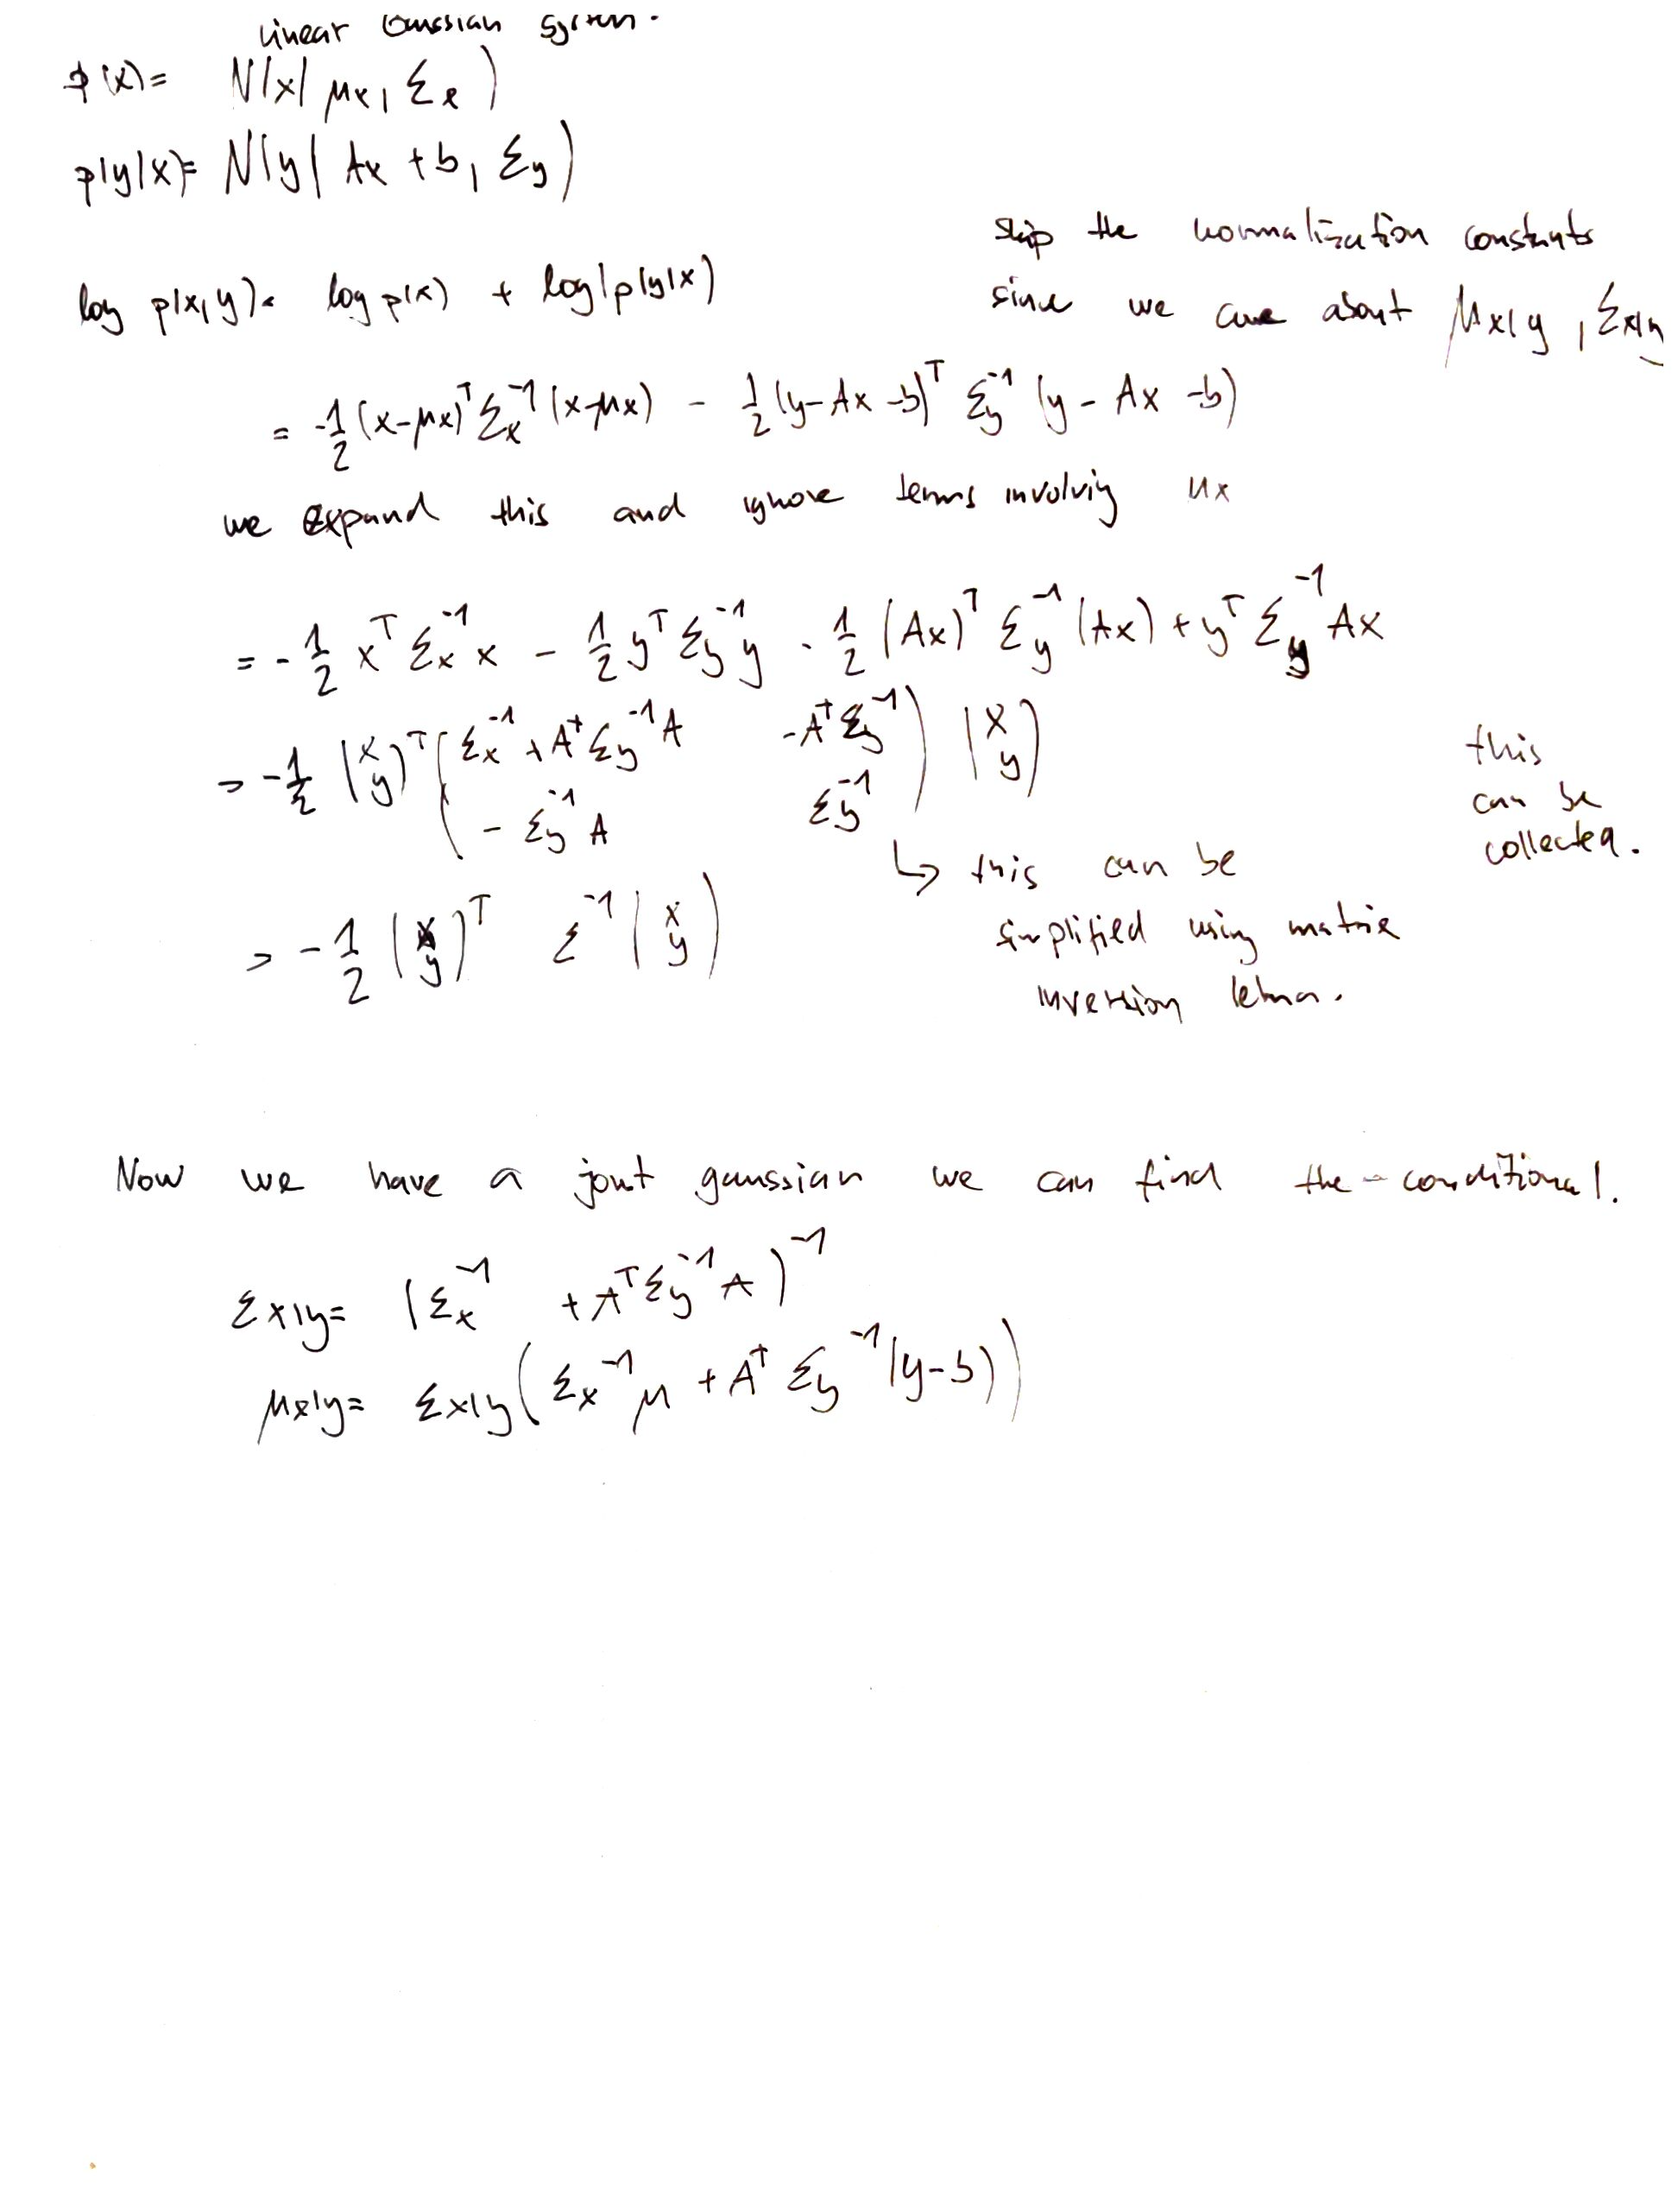 Linear Gaussian System.
p(x)= N(x| μx, Σx)
p(y|x)= N(y| Ax + b, Σy)
skip the normalization constants
since we care about μx|y, Σx|y
log p(x,y)= log p(x) + log(p(y|x)
= -1/2 (x-μx)^T Σx^-1 (x-μx) - 1/2 (y-Ax-b)^T Σy^-1 (y - Ax -b)
we expand this and ignore terms involving μx
= -1/2 x^T Σx^-1 x - 1/2 y^T Σy^-1 y - 1/2 (Ax)^T Σy^-1 (Ax) + y^T Σy^-1 Ax
= -1/2 (x y)^T ( Σx^-1 + A^T Σy^-1 A   -A^T Σy^-1 ) (x y)
( - Σy^-1 A   Σy^-1 )
this
can be
collected.
↳ this can be
simplified using matrix
inversion lemma.
= -1/2 (x y)^T Σ^-1 (x y)
Now we have a jont gaussian we can find the conditional.
Σx|y= (Σx^-1 + A^T Σy^-1 A)^-1
μx|y= Σx|y( Σx^-1 μ + A^T Σy^-1 (y-b))